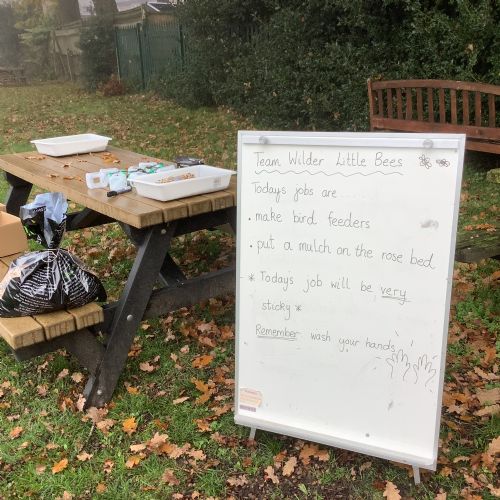 Team Wilder Little Bees
Today's jobs are .....
• make bird feeders
• put a mulch on the rose bed
* Today's job will be very
sticky *
Remember wash your hands